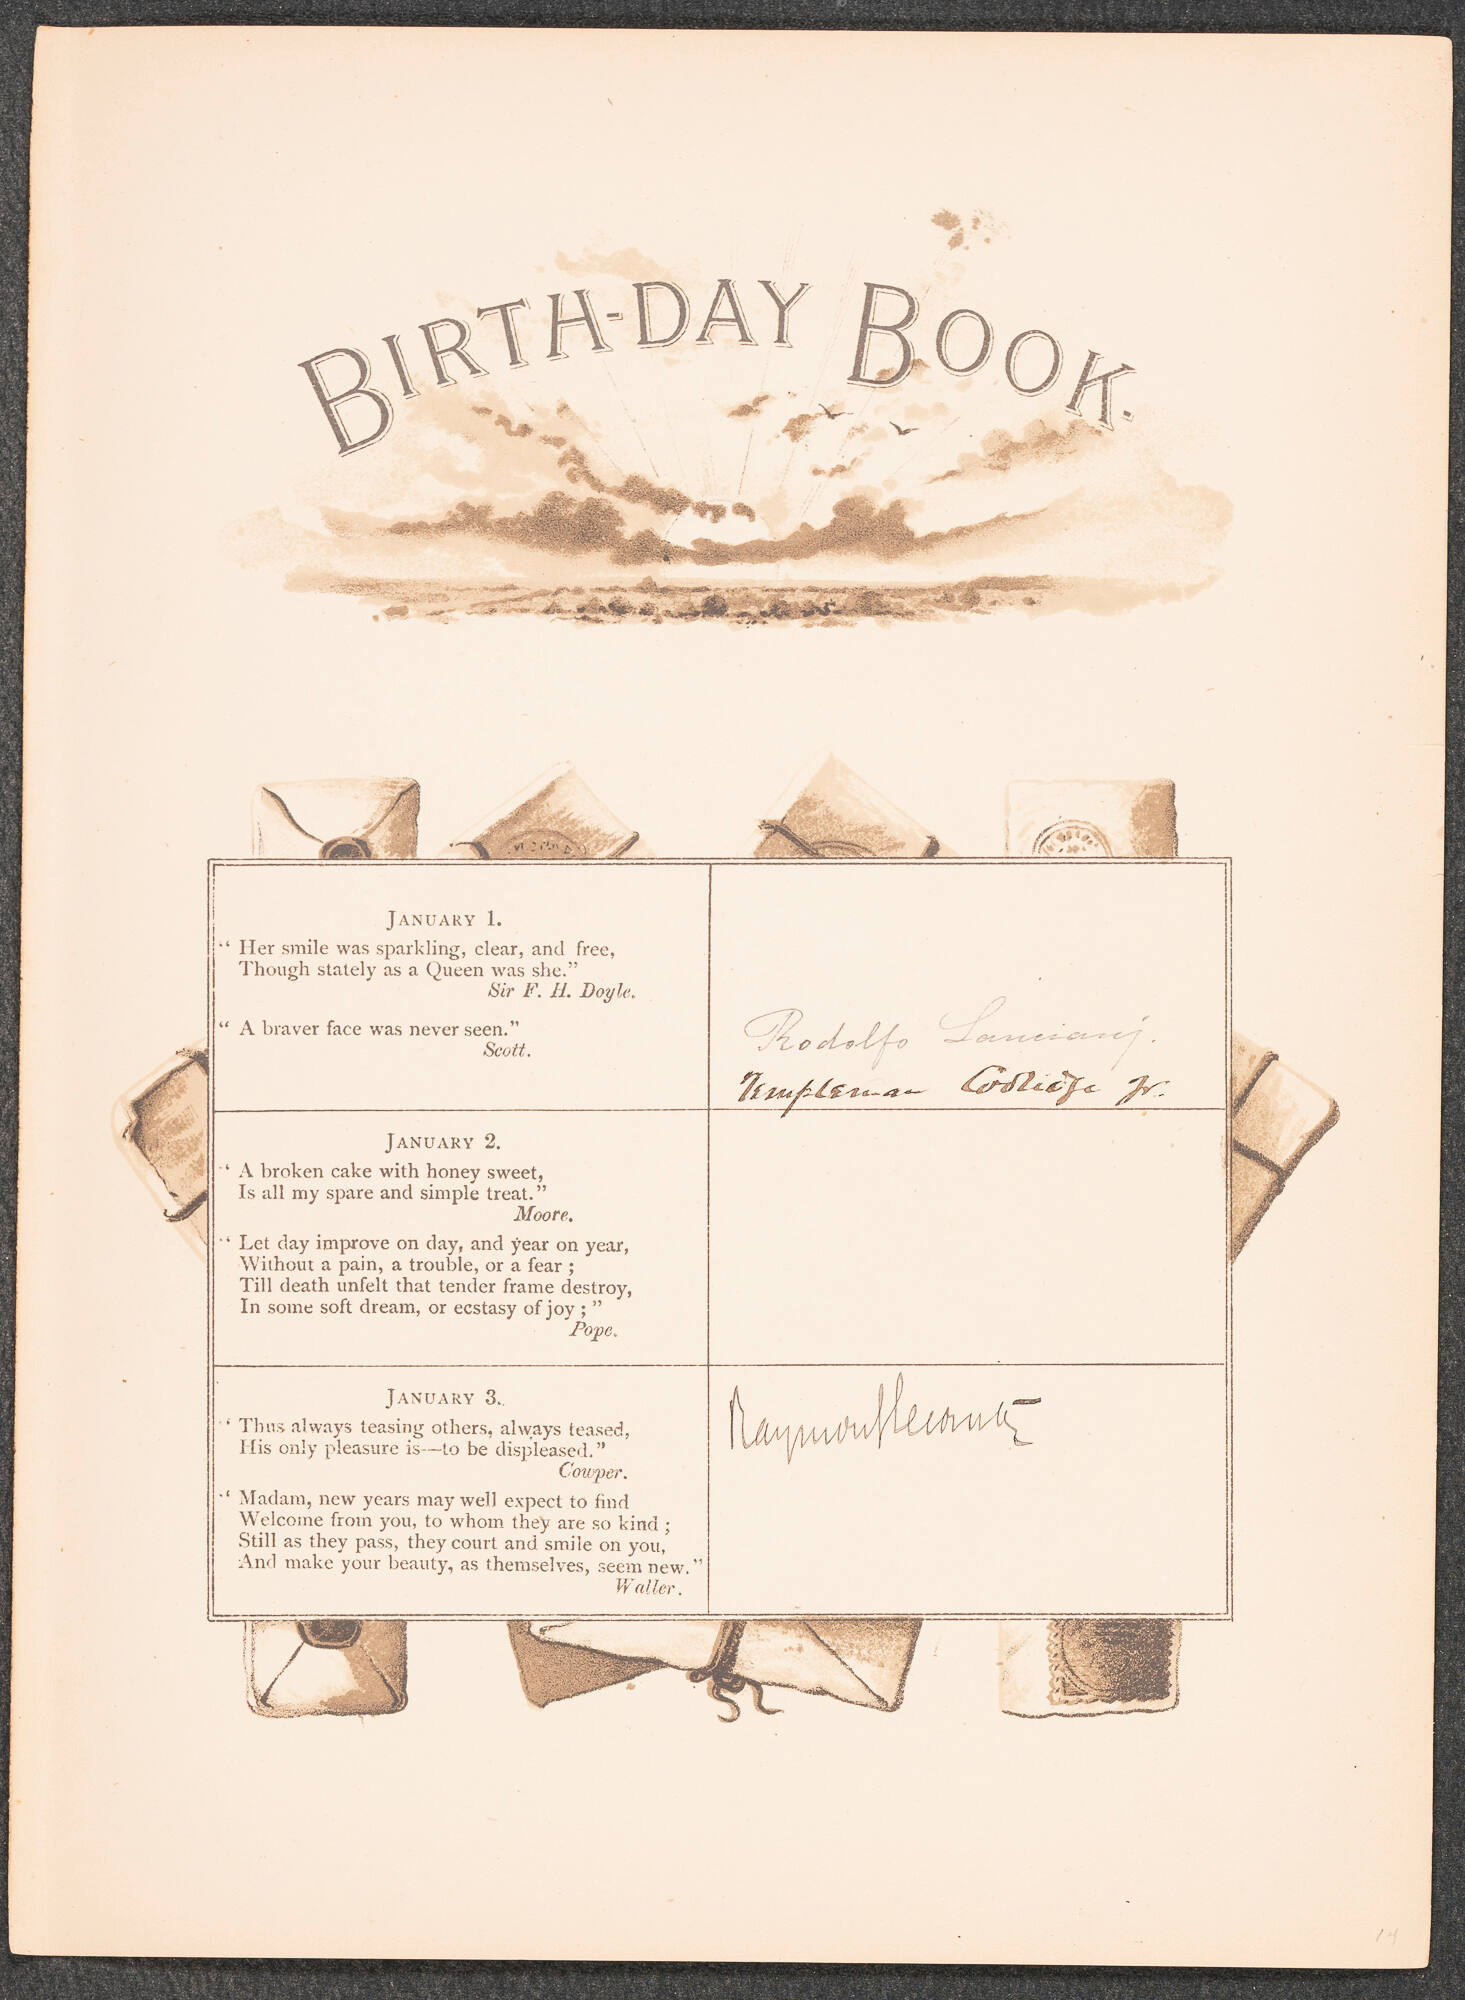 BIRTH-DAY BOOK.
JANUARY 1.
“ Her smile was sparkling, clear, and free,
Though stately as a Queen was she.”
Sir F. H. Doyle.
“ A braver face was never seen.”
Scott.
Rodolfo Lanciani.
Templeman Coolidge Jr.
JANUARY 2.
“ A broken cake with honey sweet,
Is all my spare and simple treat.”
Moore.
“ Let day improve on day, and year on year,
Without a pain, a trouble, or a fear ;
Till death unfelt that tender frame destroy,
In some soft dream, or ecstasy of joy ; ”
Pope.
JANUARY 3.
“ Thus always teasing others, always teased,
His only pleasure is—to be displeased.”
Cowper.
“ Madam, new years may well expect to find
Welcome from you, to whom they are so kind ;
Still as they pass, they court and smile on you,
And make your beauty, as themselves, seem new.”
Waller.
Raymond Lecomte
14